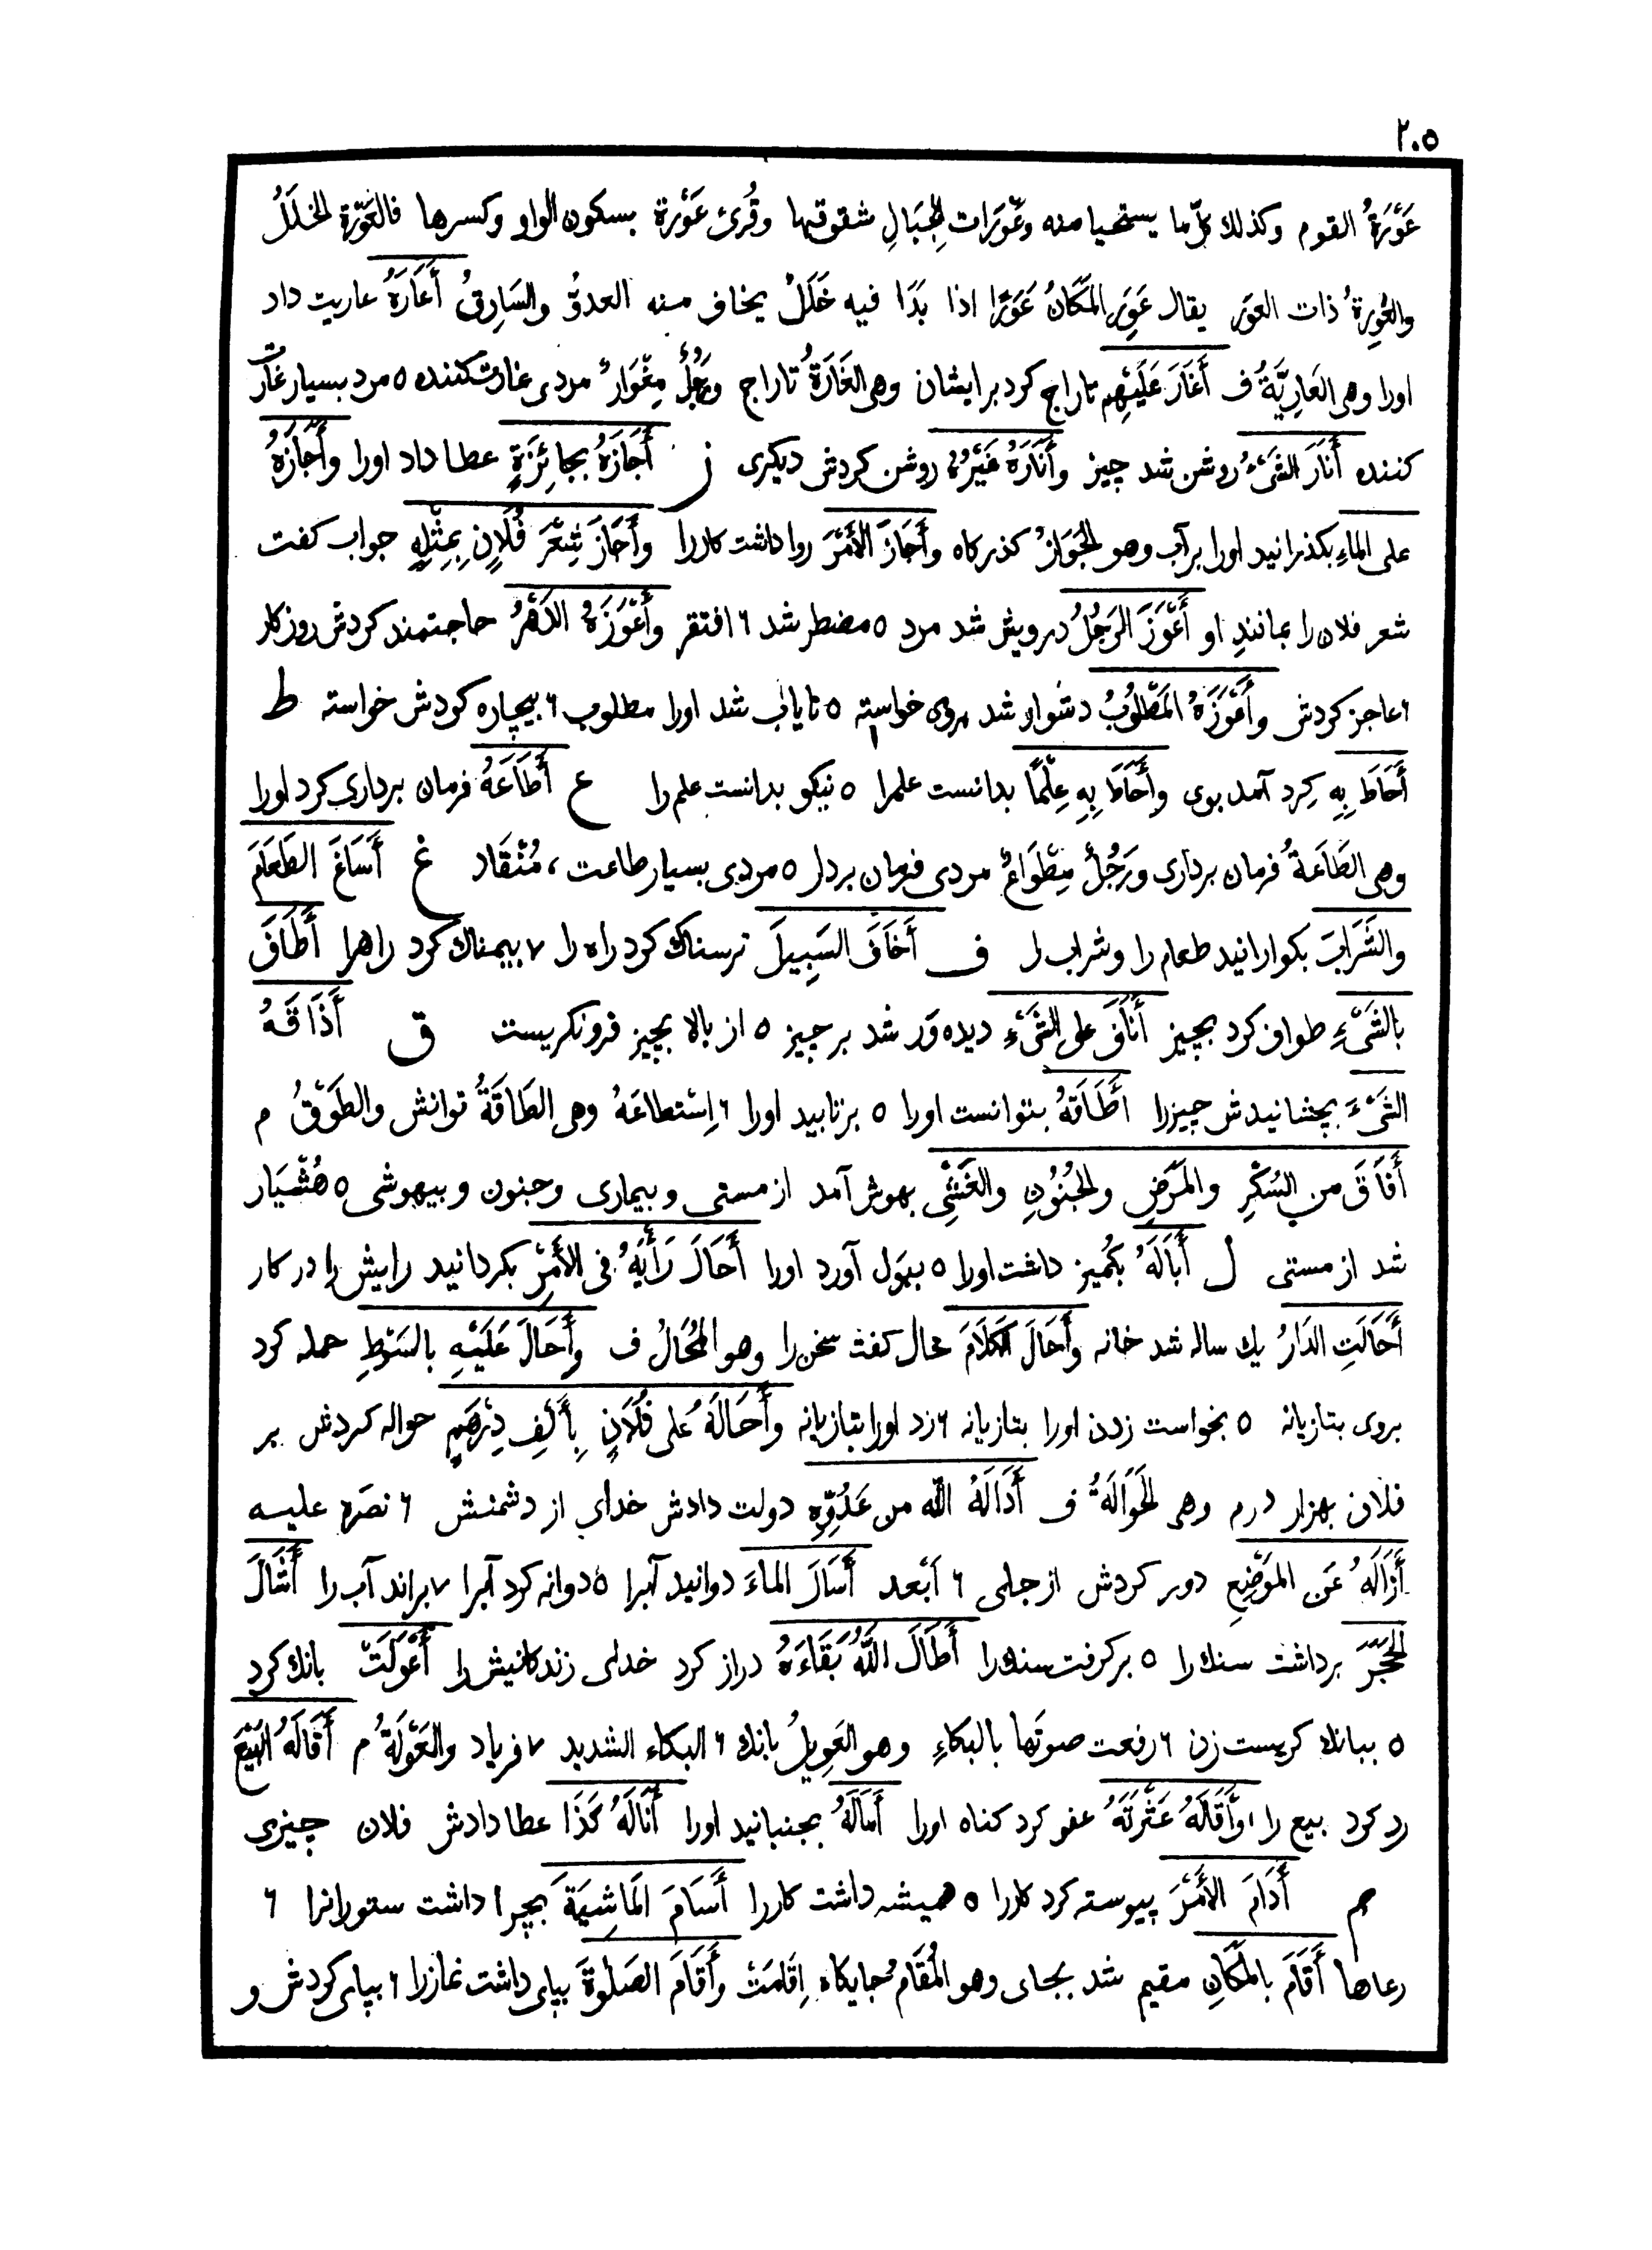 ٢٠٥
عَوْرَةُ القوم وكذلك كلّ ما يستحيا منه وعَوْرَات الجِبَالِ شقوقها وقُرِئ عَوْرة بسكون الواو وكسرها فالعَوْرَة الخلَلُ
والعَوِرةُ ذات العوَر يقال عَوِرَ المَكَانُ عَوَرًا اذا بَدَا فيه خَلَلٌ يخاف منه العدوّ والسَارِقُ أَعَارَهُ عاريت داد
اورا وهى العَارِيَّةُ ف أَغَارَ عَلَيْهِم تاراج كرد بر ايشان وهى الغَارَةُ تاراج ورَجُلٌ مِغْوَارٌ مردى غارت كننده ٥ مرد بسيار غارت
كننده أَنَارَ الشَىْءُ روشن شد چيز وأَنَارَهُ غَيْرُهُ روشن كردش ديكرى ز أَجَازَهُ بجَائِزَةٍ عطا داد اورا وأَجَازَهُ
على الماءِ بكذرانيد اورا بر آب وهو الجَوَازُ كذركاه وأَجَازَ الأَمْرَ روا داشت كار را وأَجَازَ شِعْرَ فُلَانٍ بِمِثْلِهِ جواب كفت
شعر فلان را بمانندِ او أَعْوَزَ الرَجُلُ درويش شد مرد ٥ مضطر شد ٦ افتقر وأَعْوَزَهُ الدَهْرُ حاجتمند كردش روزكار
٦ عاجز كردش وأَعْوَزَهُ المَطْلُوبُ دشوار شد بروى خواسته ٥ ناياب شد اورا مطلوب ٦ بيچاره كردش خواسته ط
أَحَاطَ بِهِ كِرد آمد بوى وأَحَاطَ بِهِ عِلْمًا بدانست علمرا ٥ نيكو بدانست علم را ع أَطَاعَهُ فرمان بردارى كرد اورا
وهى الطَاعَةُ فرمان بردارى ورَجُلٌ مِطْوَاعٌ مردى فرمان بردار ٥ مردى بسيار طاعت ، مُنْقَاد غ أَسَاغَ الطَعَامَ
والشَرَابَ بكوارانيد طعام را وشراب را ف أَخَافَ السَبِيلَ ترسناك كرد راه را ٧ بيمناك كرد راهرا أَطَافَ
بالشَىْءِ طواف كرد بچيز أَنَافَ على الشَىْءِ ديده ور شد بر چيز ٥ از بالا بچيز فرونكريست ق أَذَاقَهُ
الشَىْءَ بچشانيدش چيز را أَطَاقَهُ بتوانست اورا ٥ برتابيد اورا ٦ اِسْتطاعَهُ وهى الطَاقَةُ توانش والطَوْقُ م
أَفَاقَ من السُكْرِ والمَرَضِ والجُنُونِ والغَشْىِ بهوش آمد از مستى وبيمارى وجنون وبيهوشى ٥ هُشْيَار
شد از مستى ل أَبَالَهُ بكُميز داشت اورا ٥ ببَوْل آورد اورا أَحَالَ رَأْيَهُ فى الأَمْرِ بكردانيد رايش را در كار
أَحَالَتِ الدَارُ يك ساله شد خانه وأَحَالَ الكَلَامَ محال كفت سخن را وهو المُحَالُ ف وأَحَالَ عَلَيْهِ بالسَوْطِ حمله كرد
بروى بتازيانه ٥ بخواست زدن اورا بتازيانه ٦ زد اورا بتازيانه وأَحَالَهُ على فُلَانٍ بِأَلْفِ دِرْهَمٍ حواله كردش بر
فلان بهزار درم وهى الحَوَالَةُ ف أَدَالَهُ اللّه من عَدُوِّهِ دولت دادش خداى از دشمنش ٦ نصَرَه عليه
أَزَالَهُ عَن المَوْضِعِ دور كردش از جاى ٦ اَبْعد أَسَالَ الماءَ دوانيد آبرا ٥ دوانه كرد آبرا ٧ براند آب را أَشَالَ
الحَجَرَ برداشت سنك را ٥ بركرفت سنك را أَطَالَ اللّهُ بَقَاءَهُ دراز كرد خداى زندكانيش را أَعْوَلَتْ بانك كرد
٥ ببانك كريست زن ٦ رفعت صوتَها بالبكاءِ وهو العَوِيلُ بانك ٦ البكاء الشديد ٧ فرياد والعَوْلَةُ م أَقَالَهُ البَيْعَ
رد كرد بيع را وأَقَالَهُ عَثْرتَهُ عفو كرد كناه اورا أَمَالَهُ بجنبانيد اورا أَنَالَهُ كَذَا عطا دادش فلان چيزى
م أَدَامَ الأَمْرَ پيوسته كرد كار را ٥ هميشه داشت كار را أَسَامَ المَاشِيَةَ بچرا داشت ستورانرا ٦
رعاها أَقَامَ بالمَكَانِ مقيم شد بجاى وهو المُقَامُ جايكاه اِقَامَتْ وأَقَامَ الصَلٰوةَ بپاى داشت نماز را ٦ بپاى كردش و